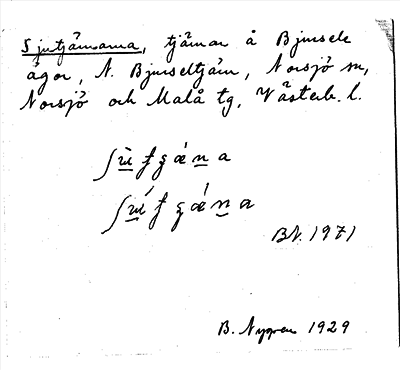 Sjutjärnarna, tjärnar å Bjursele
ägor, N. Bjurseltjärn, Norsjö sn,
Norsjö och Malå tg, Västerb. l.
BN. 1971
B. Nygren 1929